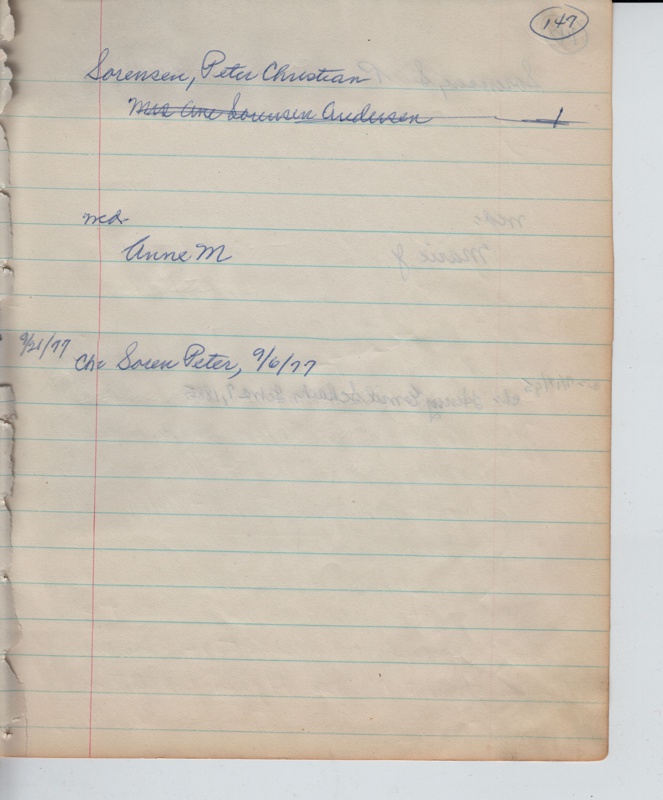 147
Sorensen, Peter Christian
Mrs Ane Sorensen Andersen
md-
Anne M
9/21/77 Ch: Soren Peter, 9/6/77